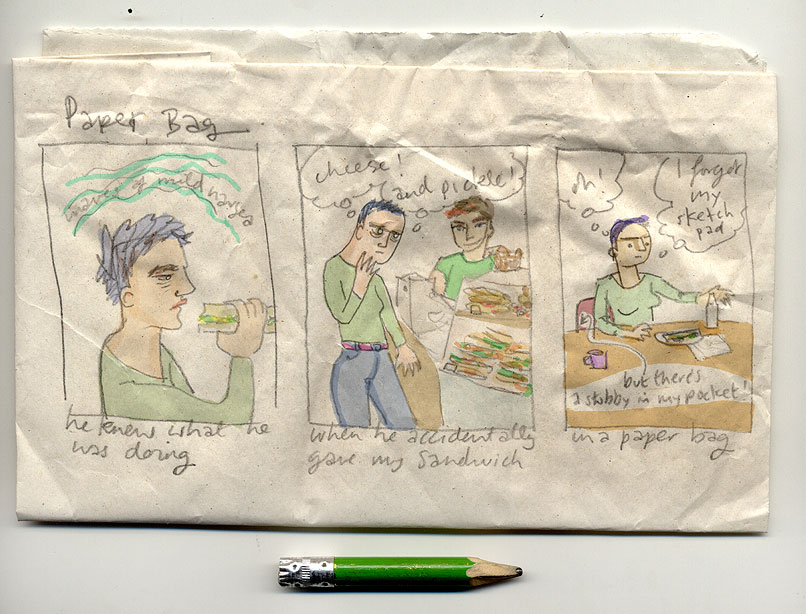 Paper Bag
waves of mild nausea
he knew what he
was doing
cheese!
and pickle!
when he accidentally
gave my sandwich
oh!
I forgot
my
sketch
pad
but there's
a stubby in my pocket!
in a paper bag